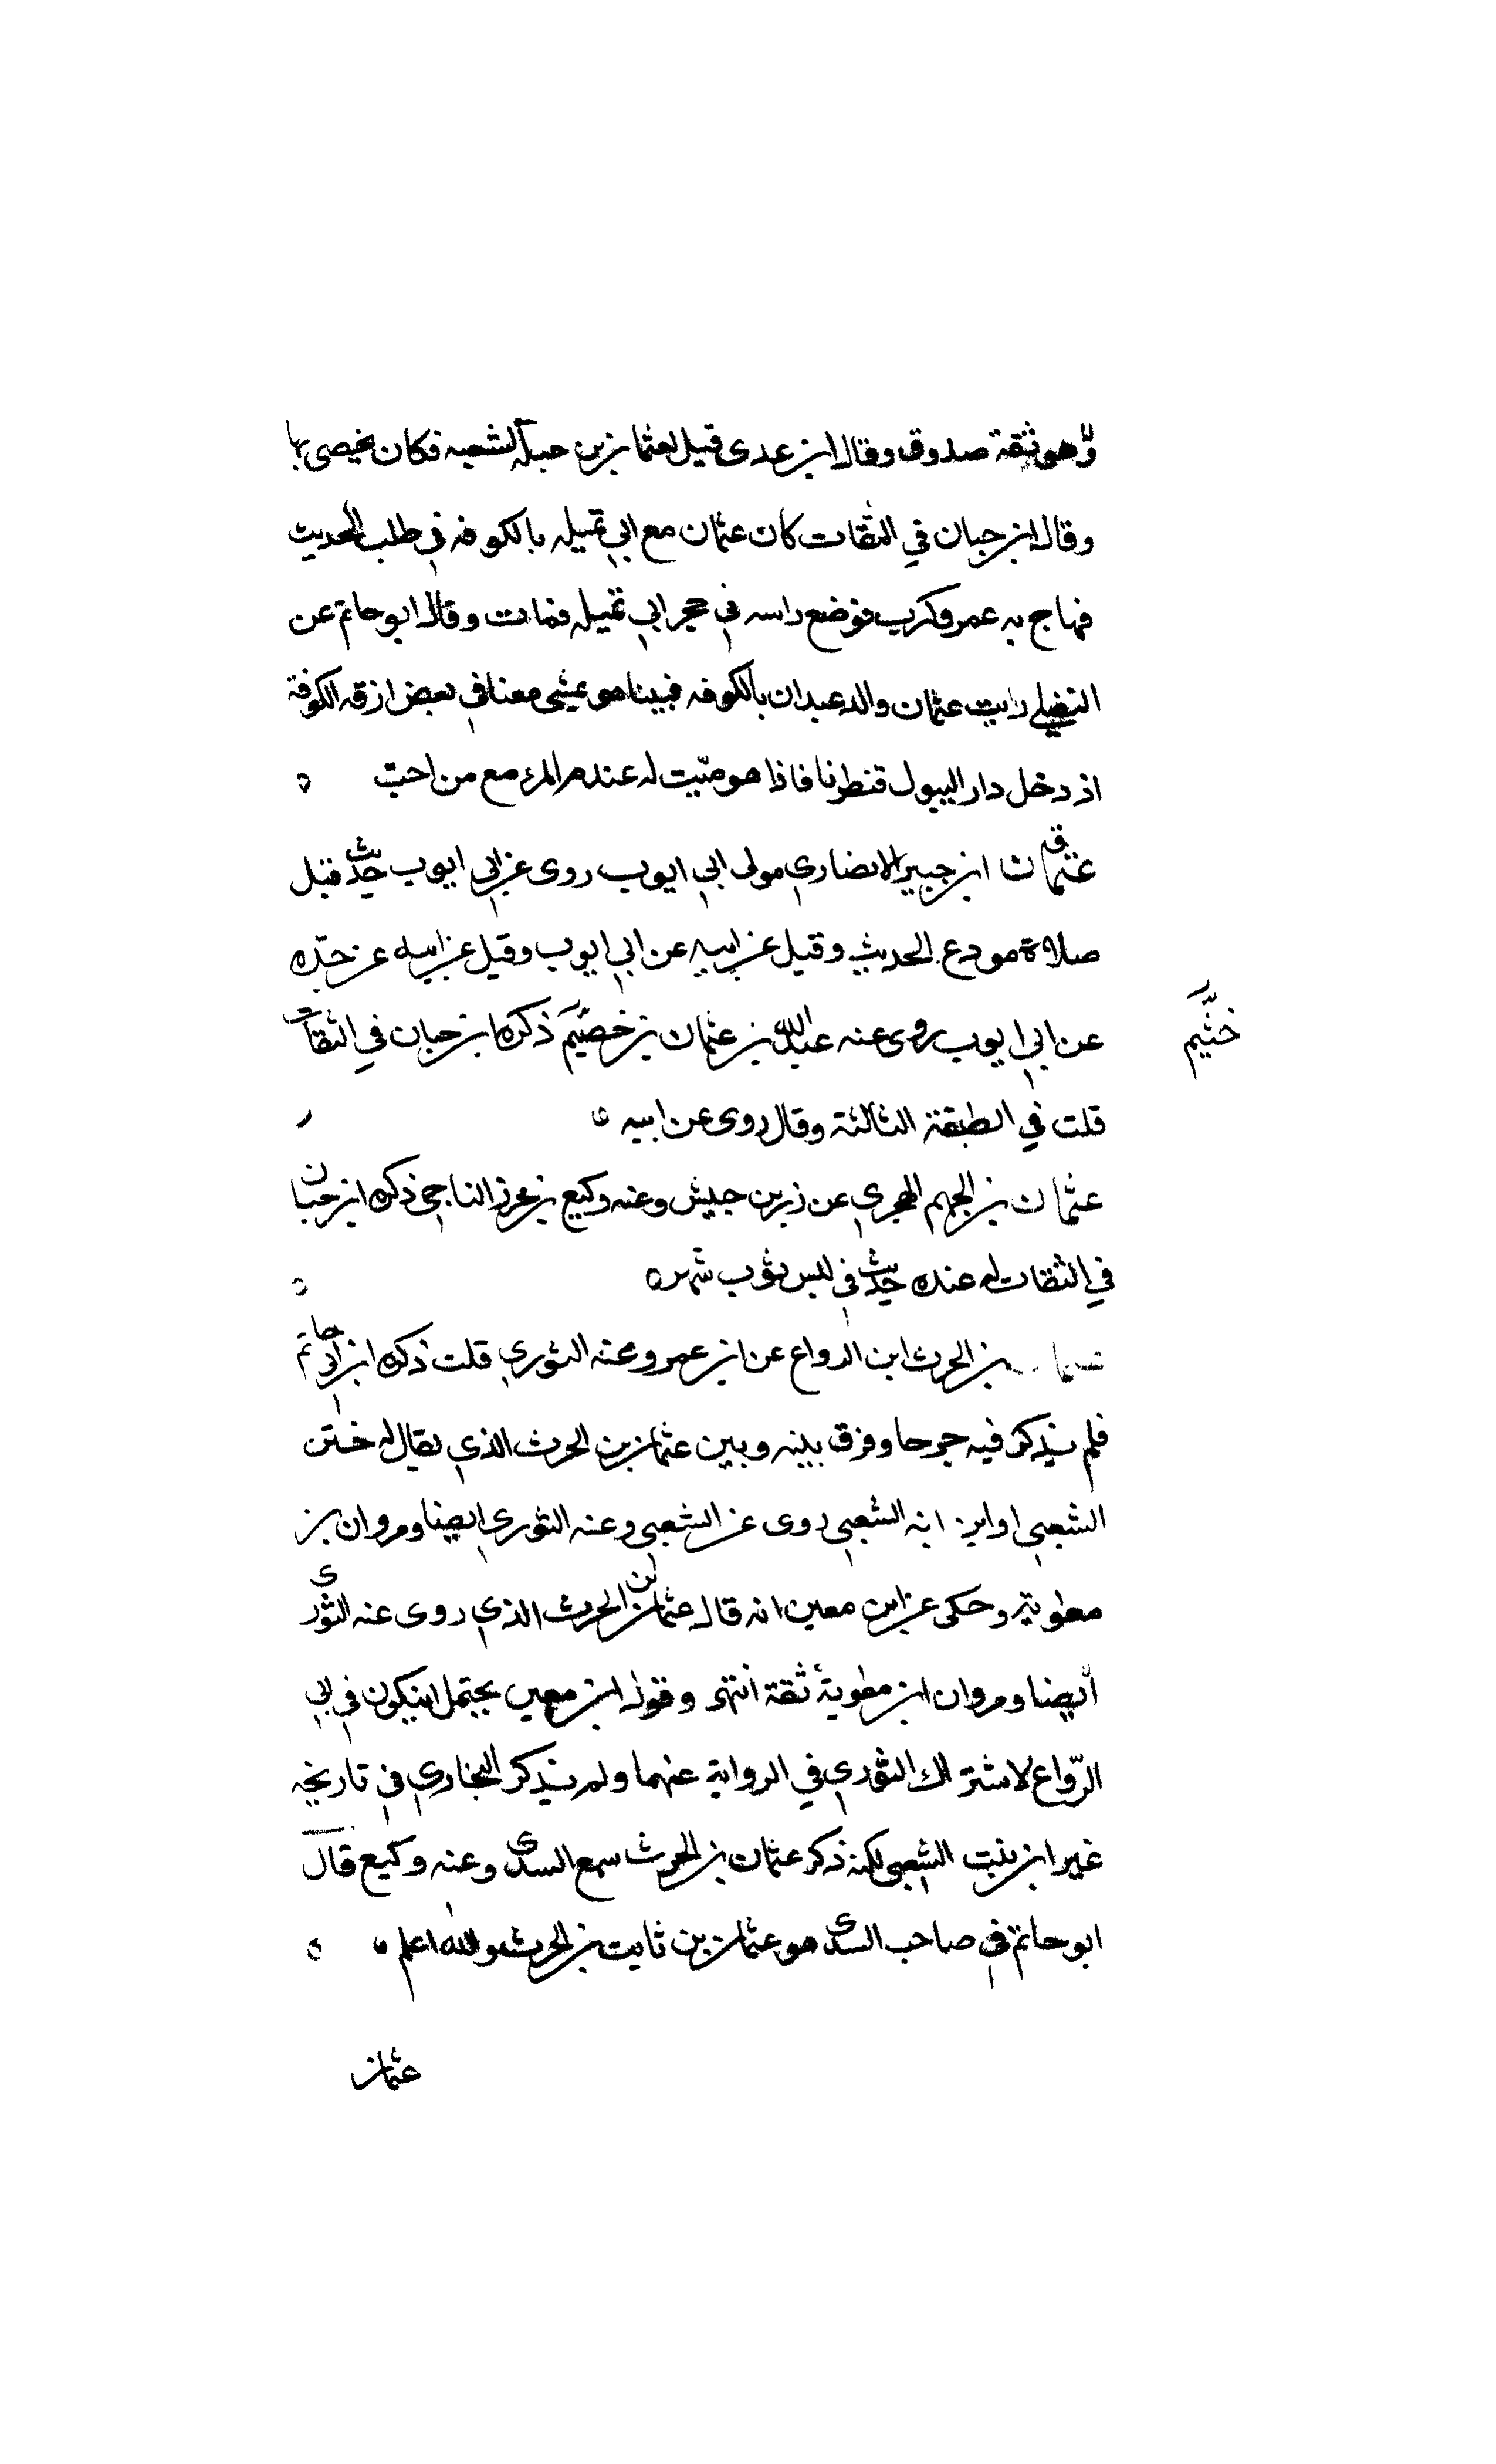 وهو ثقة صدوق وقال ابن عدى قيل لعثمان بن جبلة لشعبه فكان يخصى بها
وقال ابن حبان في الثقات كان عثمان مع ابي تميله بالكوفه في طلب الحديث
فهاج به عمر فكرب فوضع راسه في حجر ابي تميله فمات وقال ابو حاتم عن
رايت عثمان والد عبدان بالكوفه فبينا هو يمشي معنا في بعض ازقه الكوفة
اذ دخل دار البول فنظرنا فاذا هو ميت له عندهم المرء مع من احب
عثمان ابن جبير الانصاري مولى ابي ايوب روى عن ابي ايوب حديث قبل ق
صلاة مودع الحديث وقيل عن ابيه عن ابي ايوب وقيل عن ابيه عن جده
عن ابي ايوب روى عنه عبد الله بن عثمان بن خصيم ذكره ابن حبان في الثقات
خثيم
قلت في الطبقة الثالثة وقال روى عن ابيه
عثمان بن الجهم الهجري عن زر بن حبيش وعنه وكيع بن محرز الناجي ذكره ابن حبان
في الثقات له عنده حديث في لبس ثوب شهره
بن الحرث ابن الرواع عن ابن عمر وعنه الثوري قلت ذكره ابن ابي حاتم
فلم يذكر فيه جرحا وفرق بينه وبين عثمان بن الحرث الذي يقال له ختن
الشعبي او ابن ابنه الشعبي روى عن الشعبي وعنه الثوري ايضا ومروان بن
معوية وحكى عن ابن معين انه قال عثمان بن الحرث الذي روى عنه الثورى
ايضا ومروان ابن معوية ثقة انتهى وقول ابن معين يحتمل ان يكون في ابي
الرواع لاشتراك الثوري في الرواية عنهما ولم يذكر البخاري في تاريخه
غير ابن بنت الشعبي لكنه ذكر عثمان بن الحرث سمع السدى وعنه وكيع قال
ابو حاتم في صاحب السدى هو عثمان بن ثابت بن الحرث والله اعلم
عثمان